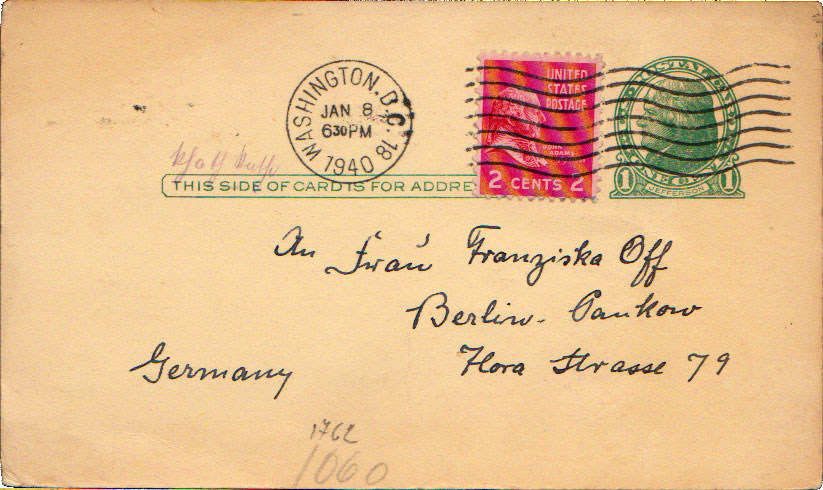 WASHINGTON, D.C. 18
JAN 8
630PM
1940
UNITED
STATES
POSTAGE
JOHN
ADAMS
2 CENTS 2
U.S. POSTAL CARD
ONE CENT
1 JEFFERSON 1
THIS SIDE OF CARD IS FOR ADDRE
An Frau Franziska Off
Berlin-Pankow
Flora Strasse 79
Germany
1762
1060